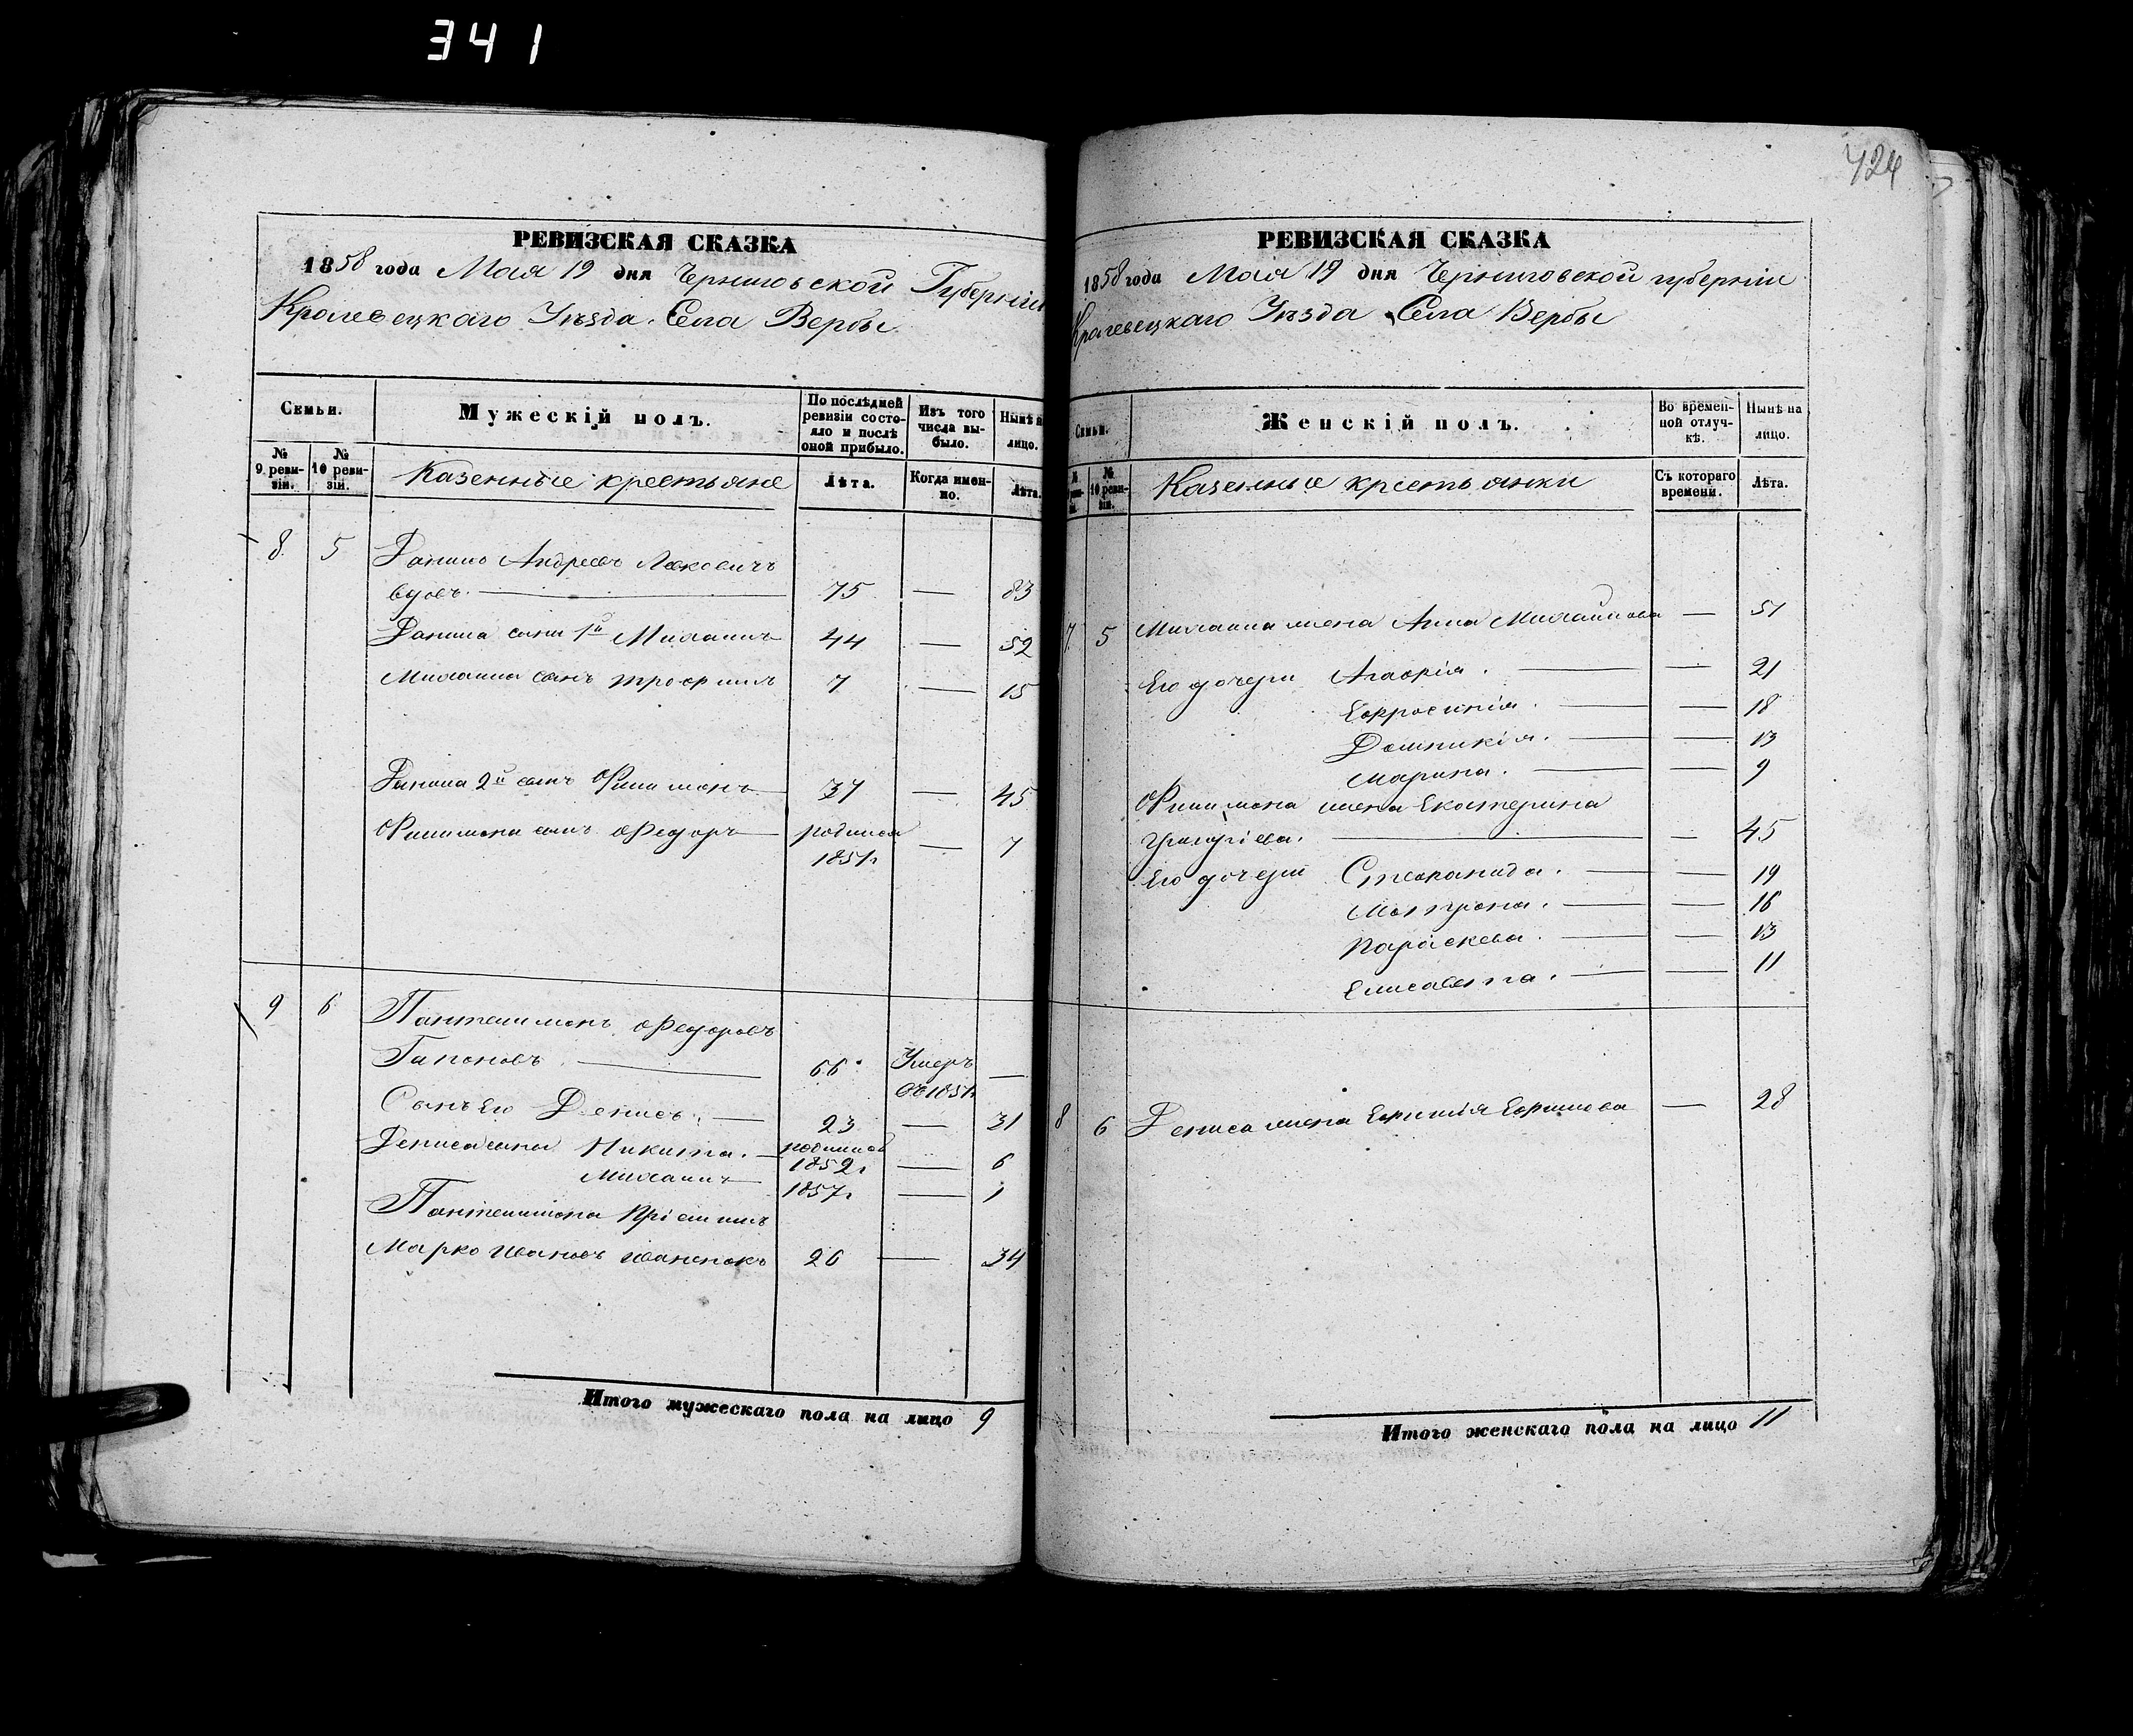 341
424
РЕВИЗСКАЯ СКАЗКА
1858 года Мая 19 дня Черниговской Губерніи
Кролевецкаго Уѣзда Села Вербы
Семьи.
Мужескій полъ.
По послѣдней ревизіи состояло и послѣ оной прибыло.
Изъ того числа выбыло.
Нынѣ на лицо.
№ 9 ревизіи.
№ 10 ревизіи.
Казенные крестьяне
Лѣта.
Когда именно.
Лѣта.
8 5 Данило Андреевъ
вдовъ. 75 — 83
Данила сынъ 1й Михаилъ 44 — 52
Михаила сынъ Трофимъ 7 — 15
Данила 2й сынъ Филимонъ 37 — 45
Филимона сынъ Федоръ родился
1851г — 7
9 6 Пантелимонъ Федоровъ
Гапоновъ 66 Умеръ —
въ 1851г
Сынъ его Денисъ. 23 — 31
Дениса сыны Никита. родился
1852г — 6
Михаилъ 1857г — 1
Пантелимона пріемышъ
Марко Ивановъ 26 — 34
Итого мужескаго пола на лицо 9
РЕВИЗСКАЯ СКАЗКА
1858 года Мая 19 дня Черниговской губерніи
Кролевецкаго Уѣзда Села Вербы
Семьи.
Женскій полъ.
Во временной отлучкѣ.
Нынѣ на лицо.
№ 10 ревизіи.
Казенные крестьянки
Съ котораго времени.
Лѣта.
7 5 Михаила жена Анна Михайлова — 51
Его дочери Агафія. — 21
Евфросинія. — 18
Домникія. — 13
Марина. — 9
Филимона жена Екатерина
Григоріева. — 45
Его дочери Стефанида. — 19
Матрона. — 16
Параскева. — 13
Елисавета. — 11
8 6 Дениса жена Евфимія Ефимова — 28
Итого женскаго пола на лицо 11